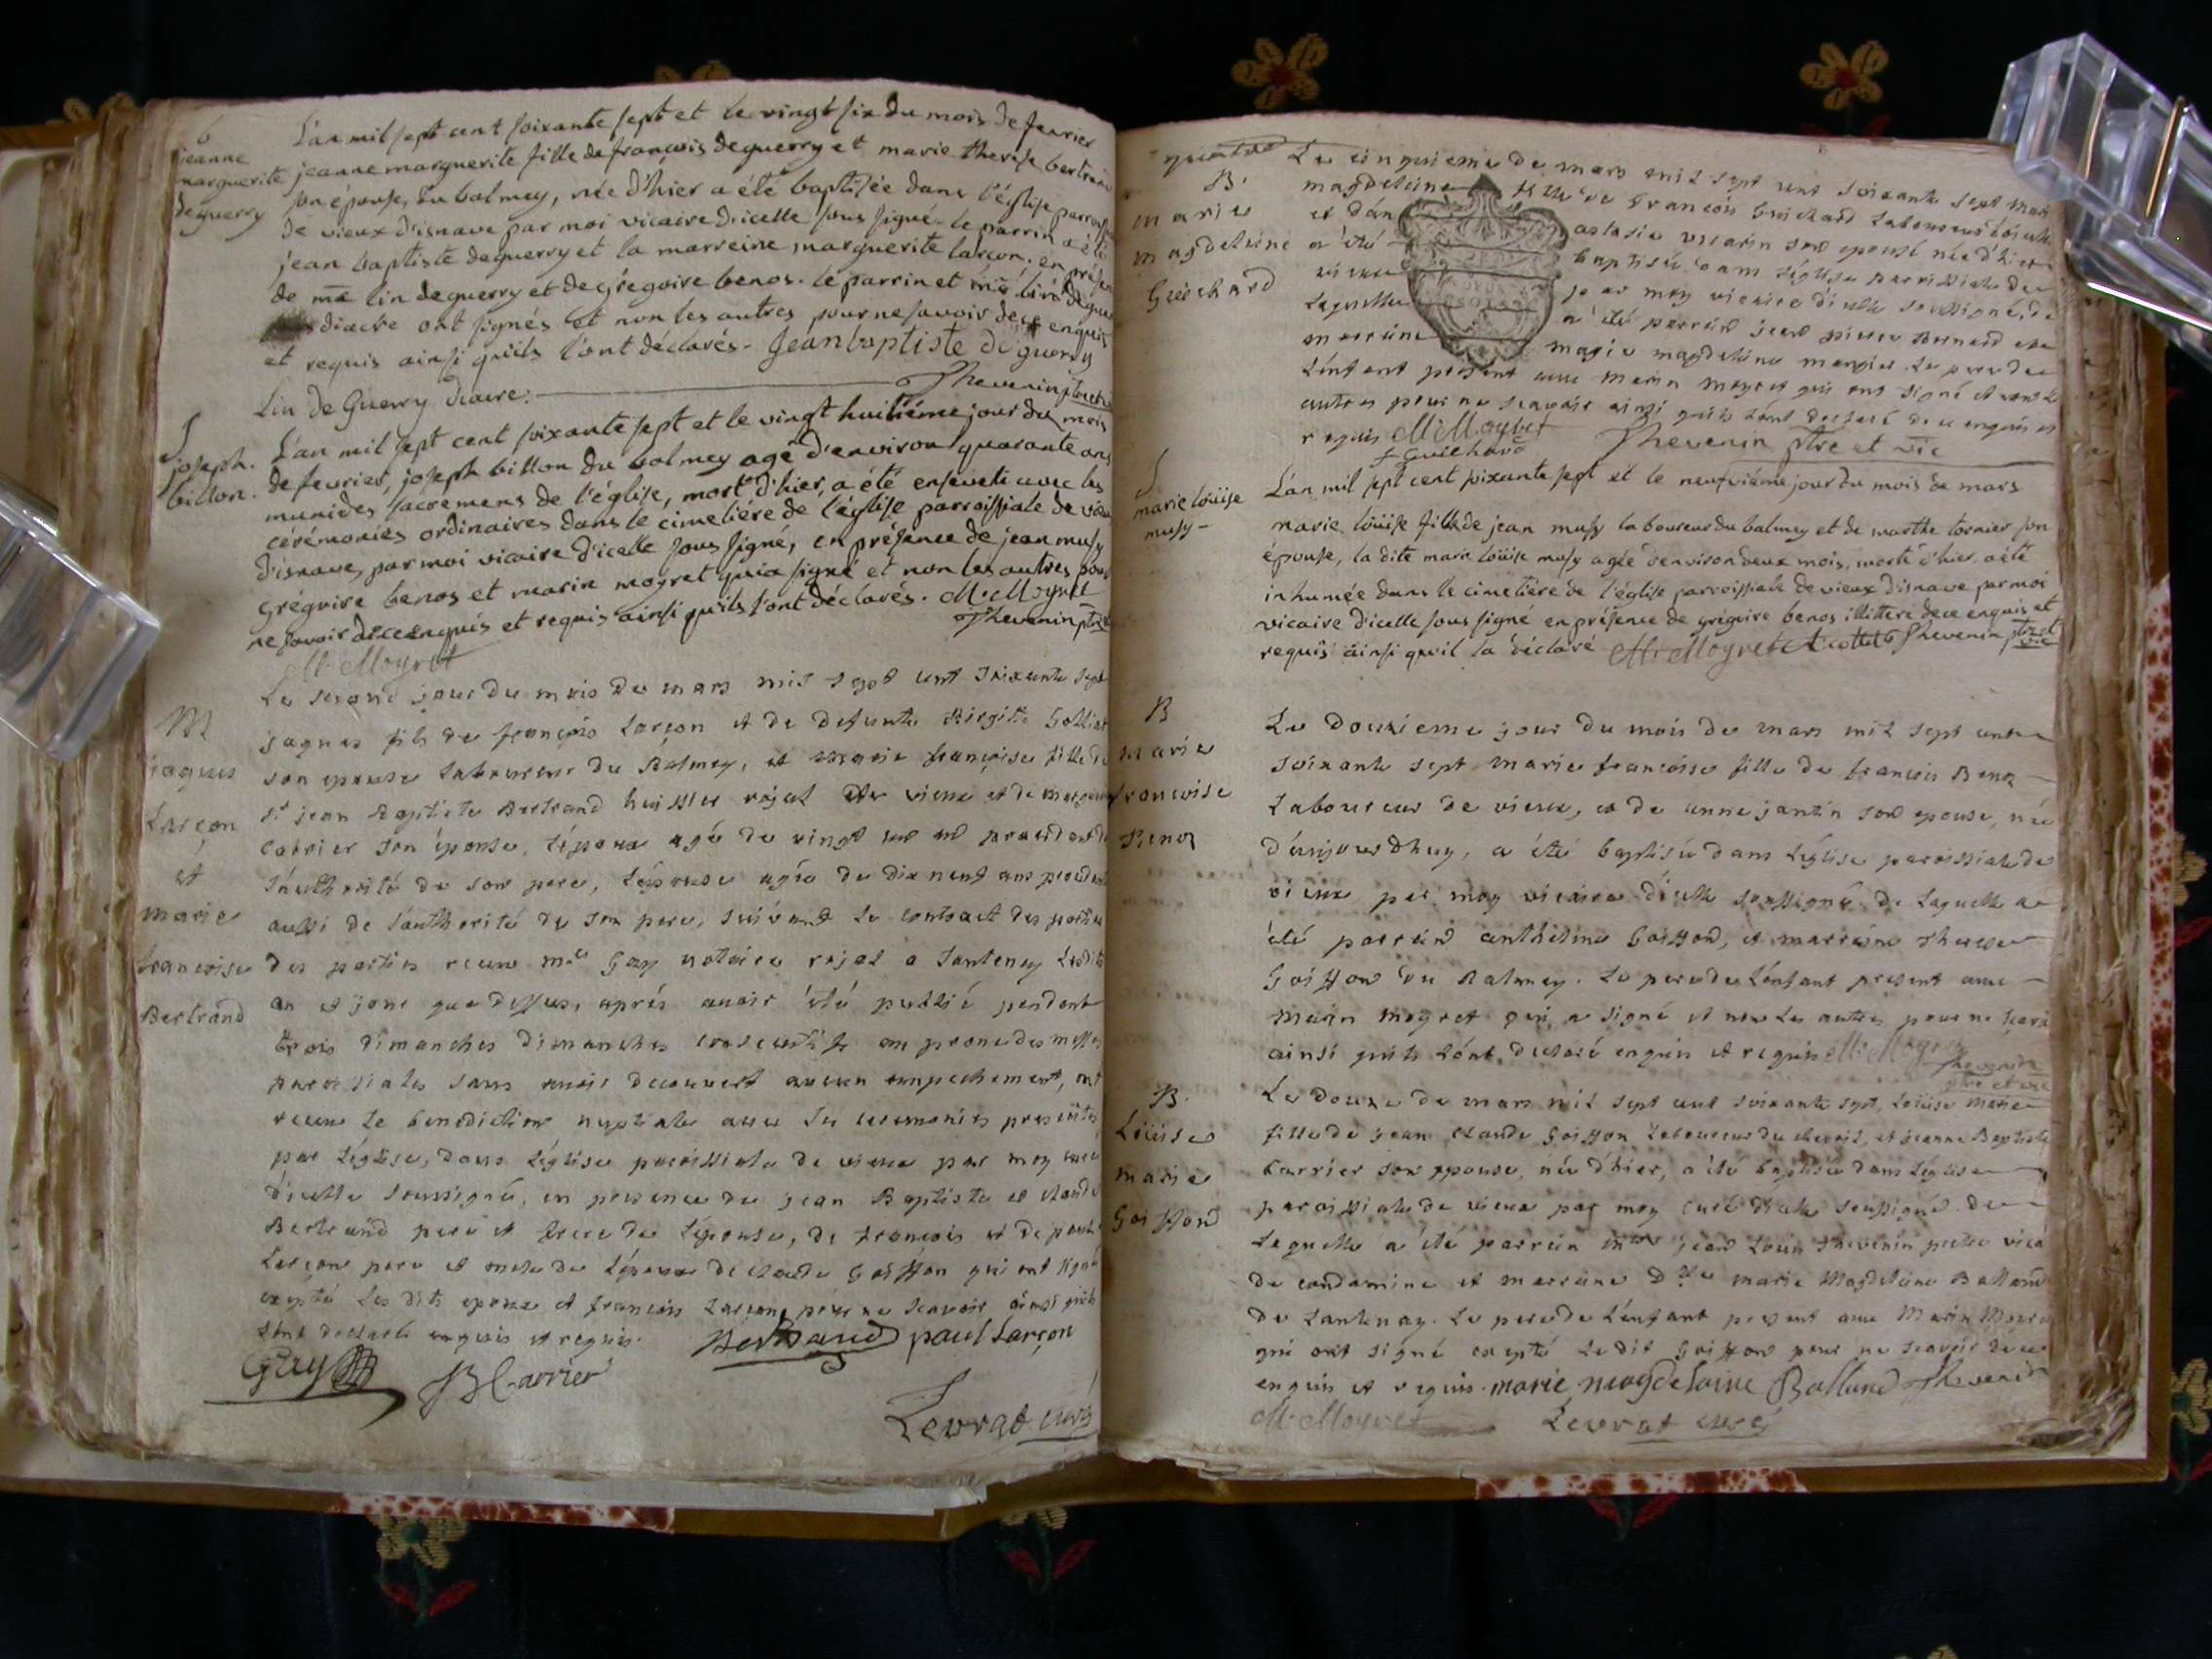 b
jeanne
marguerite
deguerry
L'an mil sept cent soixante sept et le vingt six du mois de fevrier
jeanne marguerite fille de francois deguerry et marie therese bertrand
son épouse, du balmey, née d'hier a été baptisée dans l'église parroissiale
de vieux d'isnave par moi vicaire d'icelle sous signé. le parrin a été
jean baptiste deguerry et la marreine marguerite larcon. en présence
de me lin deguerry et de grégoire benos. le parrin et me lin deguerry
diacre ont signés et non les autres pour ne savoir de ce enquis
et requis ainsi qu'ils l'ont déclarés - Jean baptiste deguerry
Lin De Guerry diacre. Thevenin
S
joseph
billon.
L'an mil sept cent soixante sept et le vingt huitiéme jour du mois
de fevrier, joseph billon du balmey agé d'environ quarante ans
muni des sacremens de l'église, mort d'hier, a été enseveli avec les
cerémonies ordinaires dans le cimetiére de l'église parroissiale de vieu
d'isnave, par moi vicaire d'icelle sous signé, en présence de jean musy
grégoire benos et marin moyret qui a signé et non les autres pour
ne savoir de ce enquis et requis ainsi qu'ils l'ont déclarés. M. Moyret
M. Moyret Thevenin ptre
M
jaques
Larçon
et
marie
francoise
Bertrand
Le second jour du mois de mars mil sept cent soixante sept
jaques fils de françois Larçon et de defunte Birgitte Golliat
son epouse Laboureur du Balmey, et marie françoise fille de
sr jean Baptiste Bertrand huissier rojal de vieux et de
carrier son éponse, l'époux agé de vingt un an procedant de
l'authorité de son pere, l'épouse agée de dix neuf ans procedant
aussi de l'authorité de son pere, suivant le contract des parties
des parties receu me Gay notaire rojal a Lanteney lesdits
an et jour que dessus, aprés avoir été publié pendent
trois dimanches dimanches consecutifs au prone des messes
paroissiales sans avoir decouvert aucun empechement, ont
receu le benediction nuptiale avec les ceremonies prescrites
par l'église, dans l'église paroissiale de vieux par moy curé
d'icelle soussigné, en presence de jean Baptiste et claude
Bertrand pere et frere de l'éponse, de francois et de paul
Larçon pere et de l'époux de claude Goiffon qui ont signé
excepté les dits epoux et francois Larçon pour ne scavoir ainsi qu'ils
l'ont declaré enquis et requis. Bertrand paul Larçon
Gay B Carrier
Levrat curé
B.
marie
magdeleine
Guichard
Le cinquieme de mars mil sept cent soixante sept marie
magdeleine fille de francois Guichard Laboureur
et d'an astasie vicarin son epouse née d'hier
a été baptisée dans l'église parroissiale de
vieux par moy vicaire d'icelle soussigné, de
laquelle a été parrein jean pierre Bernard et
marreine marie magdeleine mercier. Le pere de
l'enfant present avec marin moyret qui ont signé et non les
autres pour ne scavoir ainsi qu'ils l'ont declaré de ce enquis et
requis M. Moyret
f Guichard Thevenin ptre et vic
S
marie loüise
musy -
L'an mil sept cent soixante sept et le neufviéme jour du mois de mars
marie loüise fille de jean musy laboureur du balmey et de marthe tornier son
épouse, la dite marie loüise musy agée d'environ deux mois, morte d'hier, a été
inhumée dans le cimetiére de l'église parroissiale de vieux d'isnave par moi
vicaire d'icelle sous signé en présence de grégoire benos illitteré de ce enquis et
requis ainsi qu'il la déclaré M. Moyret Thevenin ptre et vic
B
Marie
francoise
Benoz
Le Douzieme jour du mois de mars mil sept cent
soixante sept marie francoise fille de francois Benoz
Laboureur de vieux, et de anne jantin son epouse, née
d'aujourdhuy, a été baptisée dans l'église paroissiale de
vieux par moy vicaire d'icelle soussigné de laquelle a
été parrein anthelme Goiffon, et marreine therese
Goiffon du Balmey. Le pere de l'enfant present avec
Marin moyret qui a signé et non les autres pour ne scavoir
ainsi qu'ils l'ont declaré enquis et requis M. Moyret
Thevenin
ptre et vic
B.
Loüise
marie
Goiffon
Le douze de mars mil sept cent soixante sept, Loüise marie
fille de jean claude Goiffon Laboureur du et jeanne Baptiste
Carrier son epouse, née d'hier, a été baptisée dans l'église
paroissiale de vieux par moy curé d'icelle soussigné de
laquelle a été parrein jean Louis Thevenin pretre vicaire
de condamine et marreine Dlle marie Magdeleine Balland
de Lantenay. Le pere de l'enfant present avec Marin Moyret
qui ont signé excepté ledit Goiffon pour ne scavoir de ce
enquis et requis. marie magdelaine Balland Thevenin
M. Moyret Levrat curé